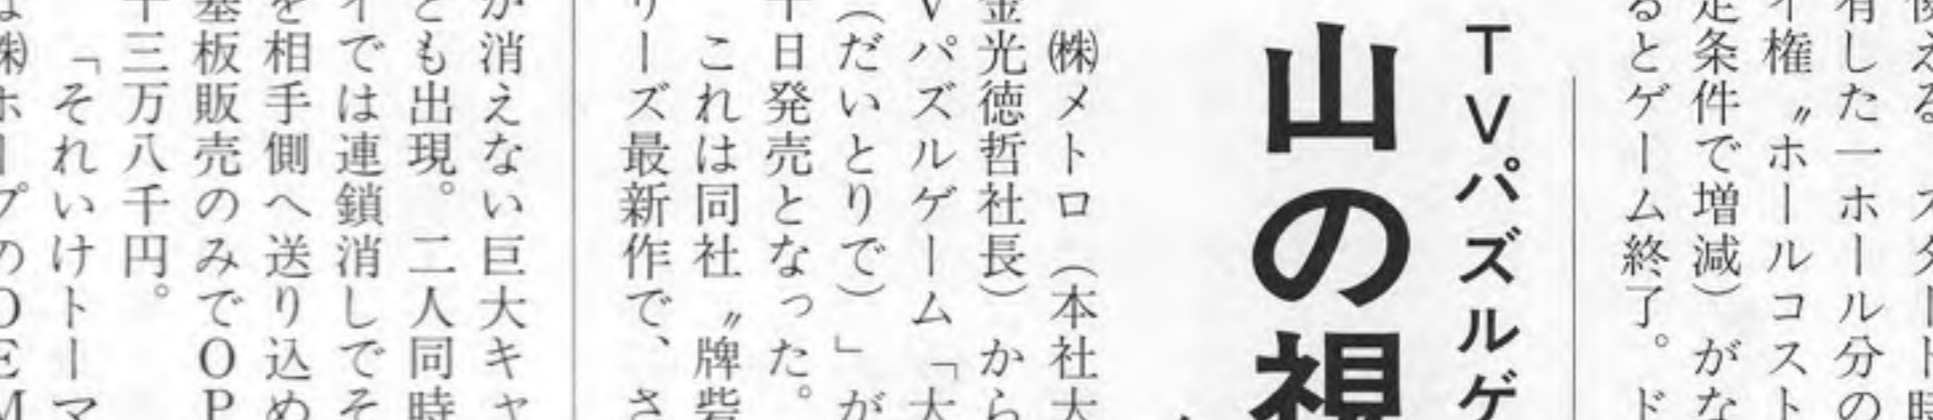 える。スタート時
有した一ホール分の
イ権〝ホールコスト
定条件で増減）がな
るとゲーム終了。ド
TVパズルゲ
山の視
㈱メトロ（本社大
金光徳哲社長）から
Vパズルゲーム「大
（だいとりで）」が
十日発売となった。
これは同社〝牌砦
リーズ最新作で、さ
が消えない巨大キャ
とも出現。二人同時
イでは連鎖消しでそ
を相手側へ送り込め
基板販売のみでOP
十三万八千円。
「それいけトーマ
㈱ホープのOEM